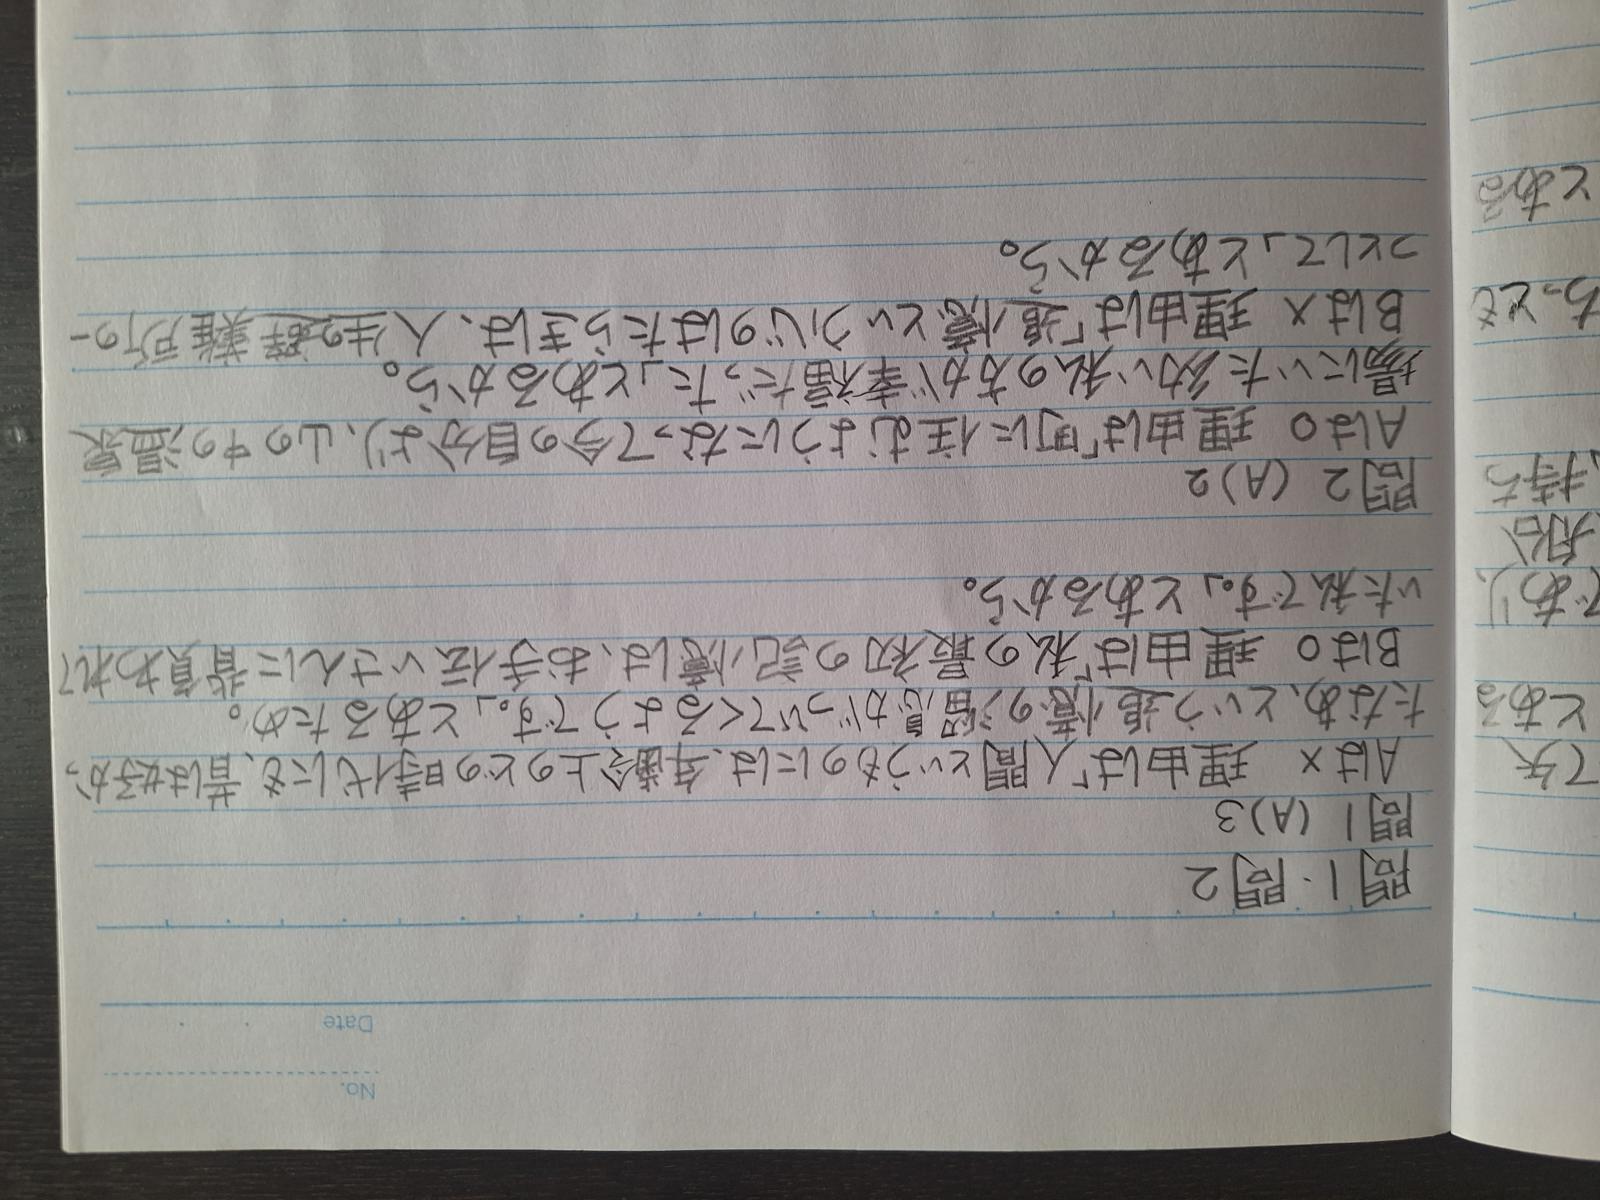 No.
Date
問1・問2
問1 (A)3
Aは× 理由は「人間というものには、年齢上のどの時代にも、昔は好か
たなあ、という追憶の溜息がついてくるようです。」とあるため。
Bは○ 理由は「私の最初の記憶は、お手伝いさんに背負われて
いた私です。」とあるから。
問2 (A)2
Aは○ 理由は「町に住むようになって今の自分より、山の中の温泉
場にいた幼い私の方が幸福だった」とあるから。
Bは× 理由は「追憶という心のはたらきは、人生の難所の一
つとして」とあるから。
て矢
とある
であり、
船
持ち
ちっとも
とある